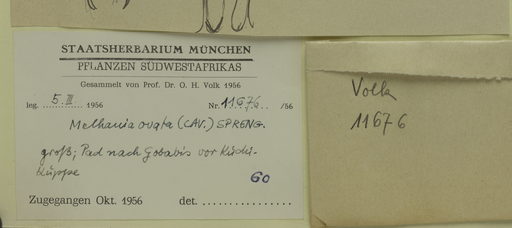 STAATSHERBARIUM MÜNCHEN
PFLANZEN SÜDWESTAFRIKAS
Gesammelt von Prof. Dr. O. H. Volk 1956
leg. 5. III 1956 Nr. 11676 /56
Melhania ovata (CAV.) SPRENG.
groß; Pad nach Gobabis vor
kuppe
GO
Zugegangen Okt. 1956 det.
Volk
11676